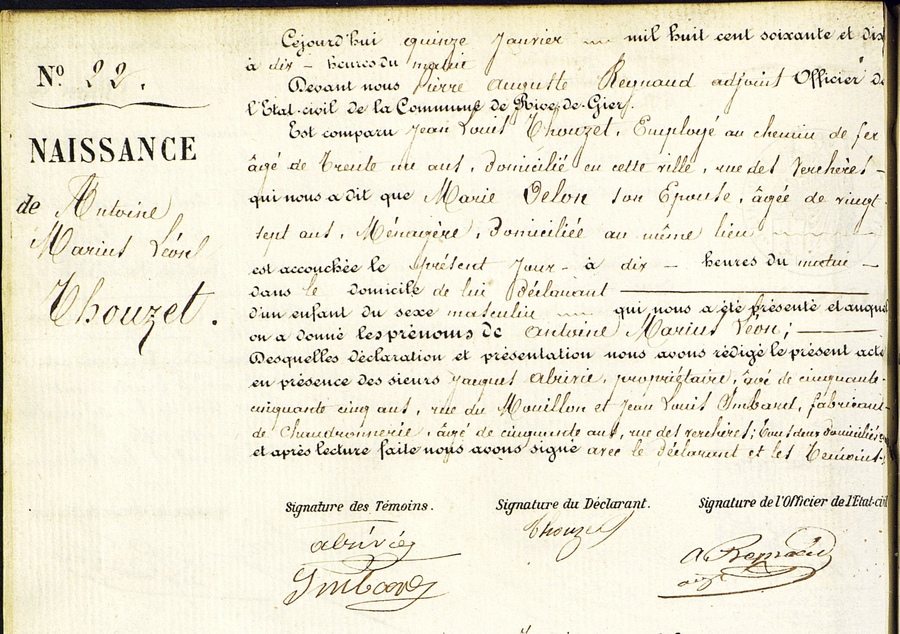 N° 22.
NAISSANCE
de Antoine
Marius Léon
Thouzet.
Cejourd'hui quinze Janvier mil huit cent soixante et dix
à dix heures du matin
Devant nous Pierre Auguste Reynaud adjoint Officier de
l'Etat-civil de la Commune de Rive-de-Gier,
Est comparu Jean Louis Thouzet, Employé au chemin de fer
âgé de trente un ans, domicilié en cette ville, rue des Verchères
qui nous a dit que Marie Delon son Epouse, âgée de vingt
sept ans, Ménagère, domiciliée au même lieu
est accouchée le présent jour à dix heures du matin
dans le domicile de lui déclarant
d'un enfant du sexe masculin qui nous a été présenté et auquel
on a donné les prénoms de Antoine Marius Léon;
Desquelles déclaration et présentation nous avons rédigé le présent acte
en présence des sieurs Jacques Abrivié, propriétaire, âgé de cinquante-
cinquante cinq ans, rue du Mouillon et Jean Louis Imbard, fabricant
de Chaudronnerie, âgé de cinquante ans, rue des verchères; tous deux domiciliés
et après lecture faite nous avons signé avec le déclarant et les témoins.
Signature des Témoins. Signature du Déclarant. Signature de l'Officier de l'Etat-civil
abrivié Thouzet A Reynaud
Imbard adjt